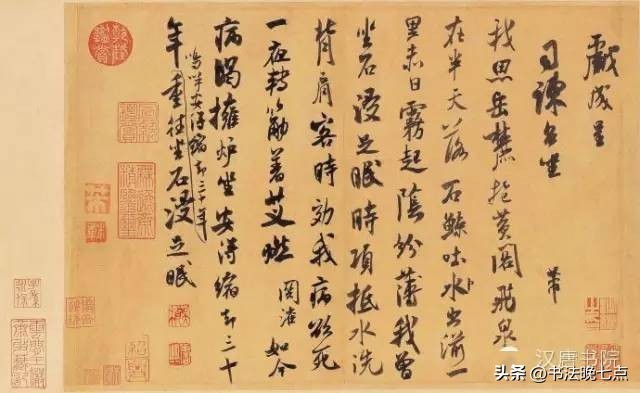 戲成呈
司諫台坐
芾
我思岳麓抱黃閣飛泉
在半天落石鯨吐水出湔一
里赤日霧起陰紛薄我曾
坐石浸足眠時項抵水洗
背肩客時効我病欲死
一夜轉筋著艾燃關灌如今
病渴擁爐坐安得縮却三十
嗚呼安得縮却三十年
年重往坐石浸足眠
汉唐书院
头条 @书法晚七点